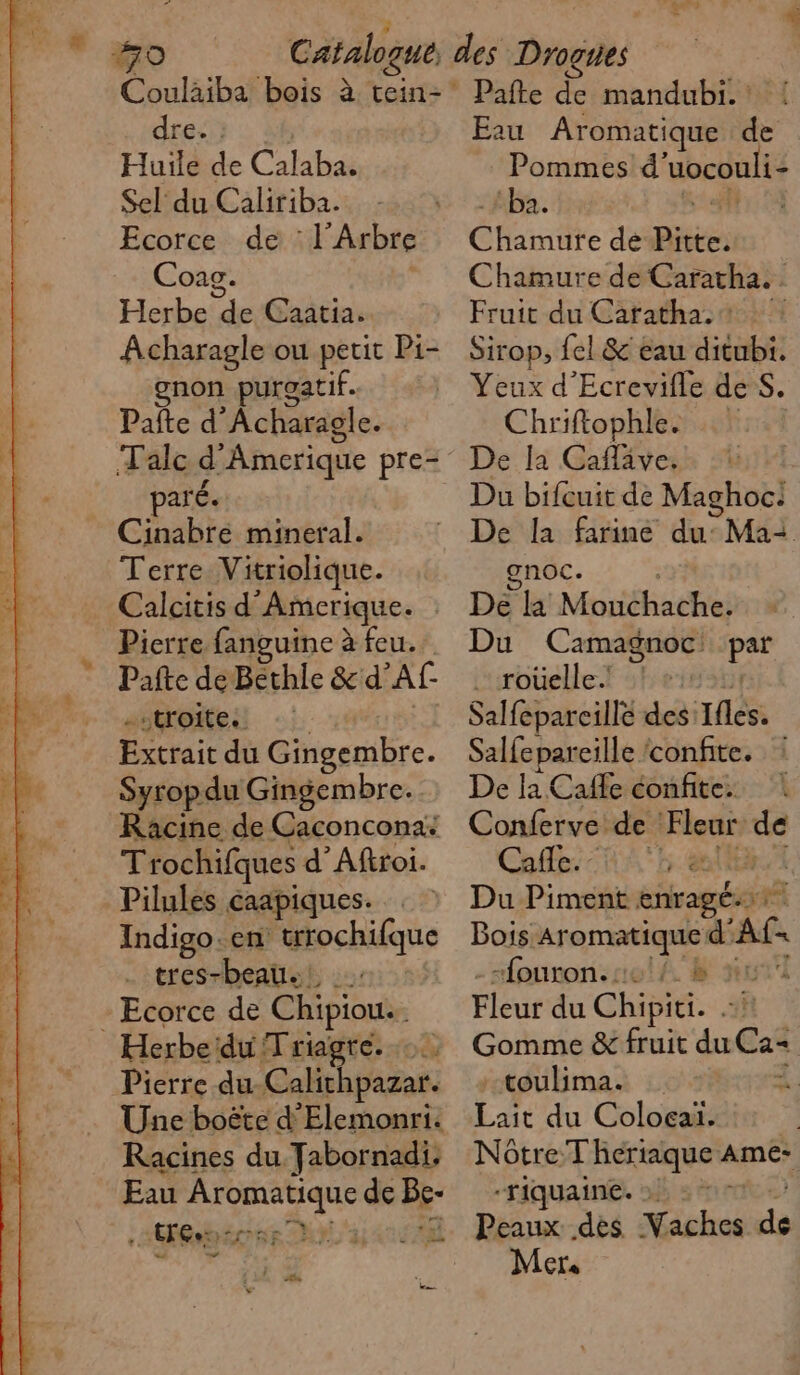 70 Catalogue, des Drogues
Coulàiba bois à tein-
dre.
Huile de Calaba.
Sel du Calitiba.
Ecorce de l'Arbre
Coag.
Herbe de Caatia.
Acharagle ou petit Pi-
gnon purgatif.
Paſte d'Acharagle.
Talc d'Amerique pre-
paré.
Cinabre mineral.
Terre Vitriolique.
Calcitis d'Amerique.
Pierre ſanguine à feu.
Paſte de Bethle & d'Aſ-
troite.
Extrait du Gingembre.
Syrop du Gingembre.
Racine de Caconcona.
Trochiſques d'Aſtroi.
Pilules caapiques.
Indigo en trrochiſque
tres-beau.
Ecorce de Chipiou.
Herbe du Triagre.
Pierre du Calithpazar.
Une boëte d'Elemonri.
Racines du Jabornadi.
Eau Aromatique de Be-
tre.
Paſte de mandubi.
Eau Aromatique de
Pommes d'uocouli-
ba.
Chamure de Pitte.
Chamure de Caratha.
Fruit du Caratha.
Sirop, ſel & eau ditubi.
Yeux d'Ecreviſſe de S.
Chriſtophle.
De la Caſſave.
Du biſcuit de Maghoc.
De la farine du Ma-
gnoc.
De la Mouchache.
Du Camagnoc par
roüelle.
Salſepareille des Iſles.
Salſepareille confite.
De la Caſſe confite.
Conſerve de Fleur de
Caſſe.
Du Piment enragé.
Bois Aromatique d'Aſ-
ſouron.
Fleur du Chipiti.
Gomme & fruit du Ca-
toulima.
Lait du Colocaï.
Nôtre Theriaque Ame-
riquaine.
Peaux des Vaches de
Mer.